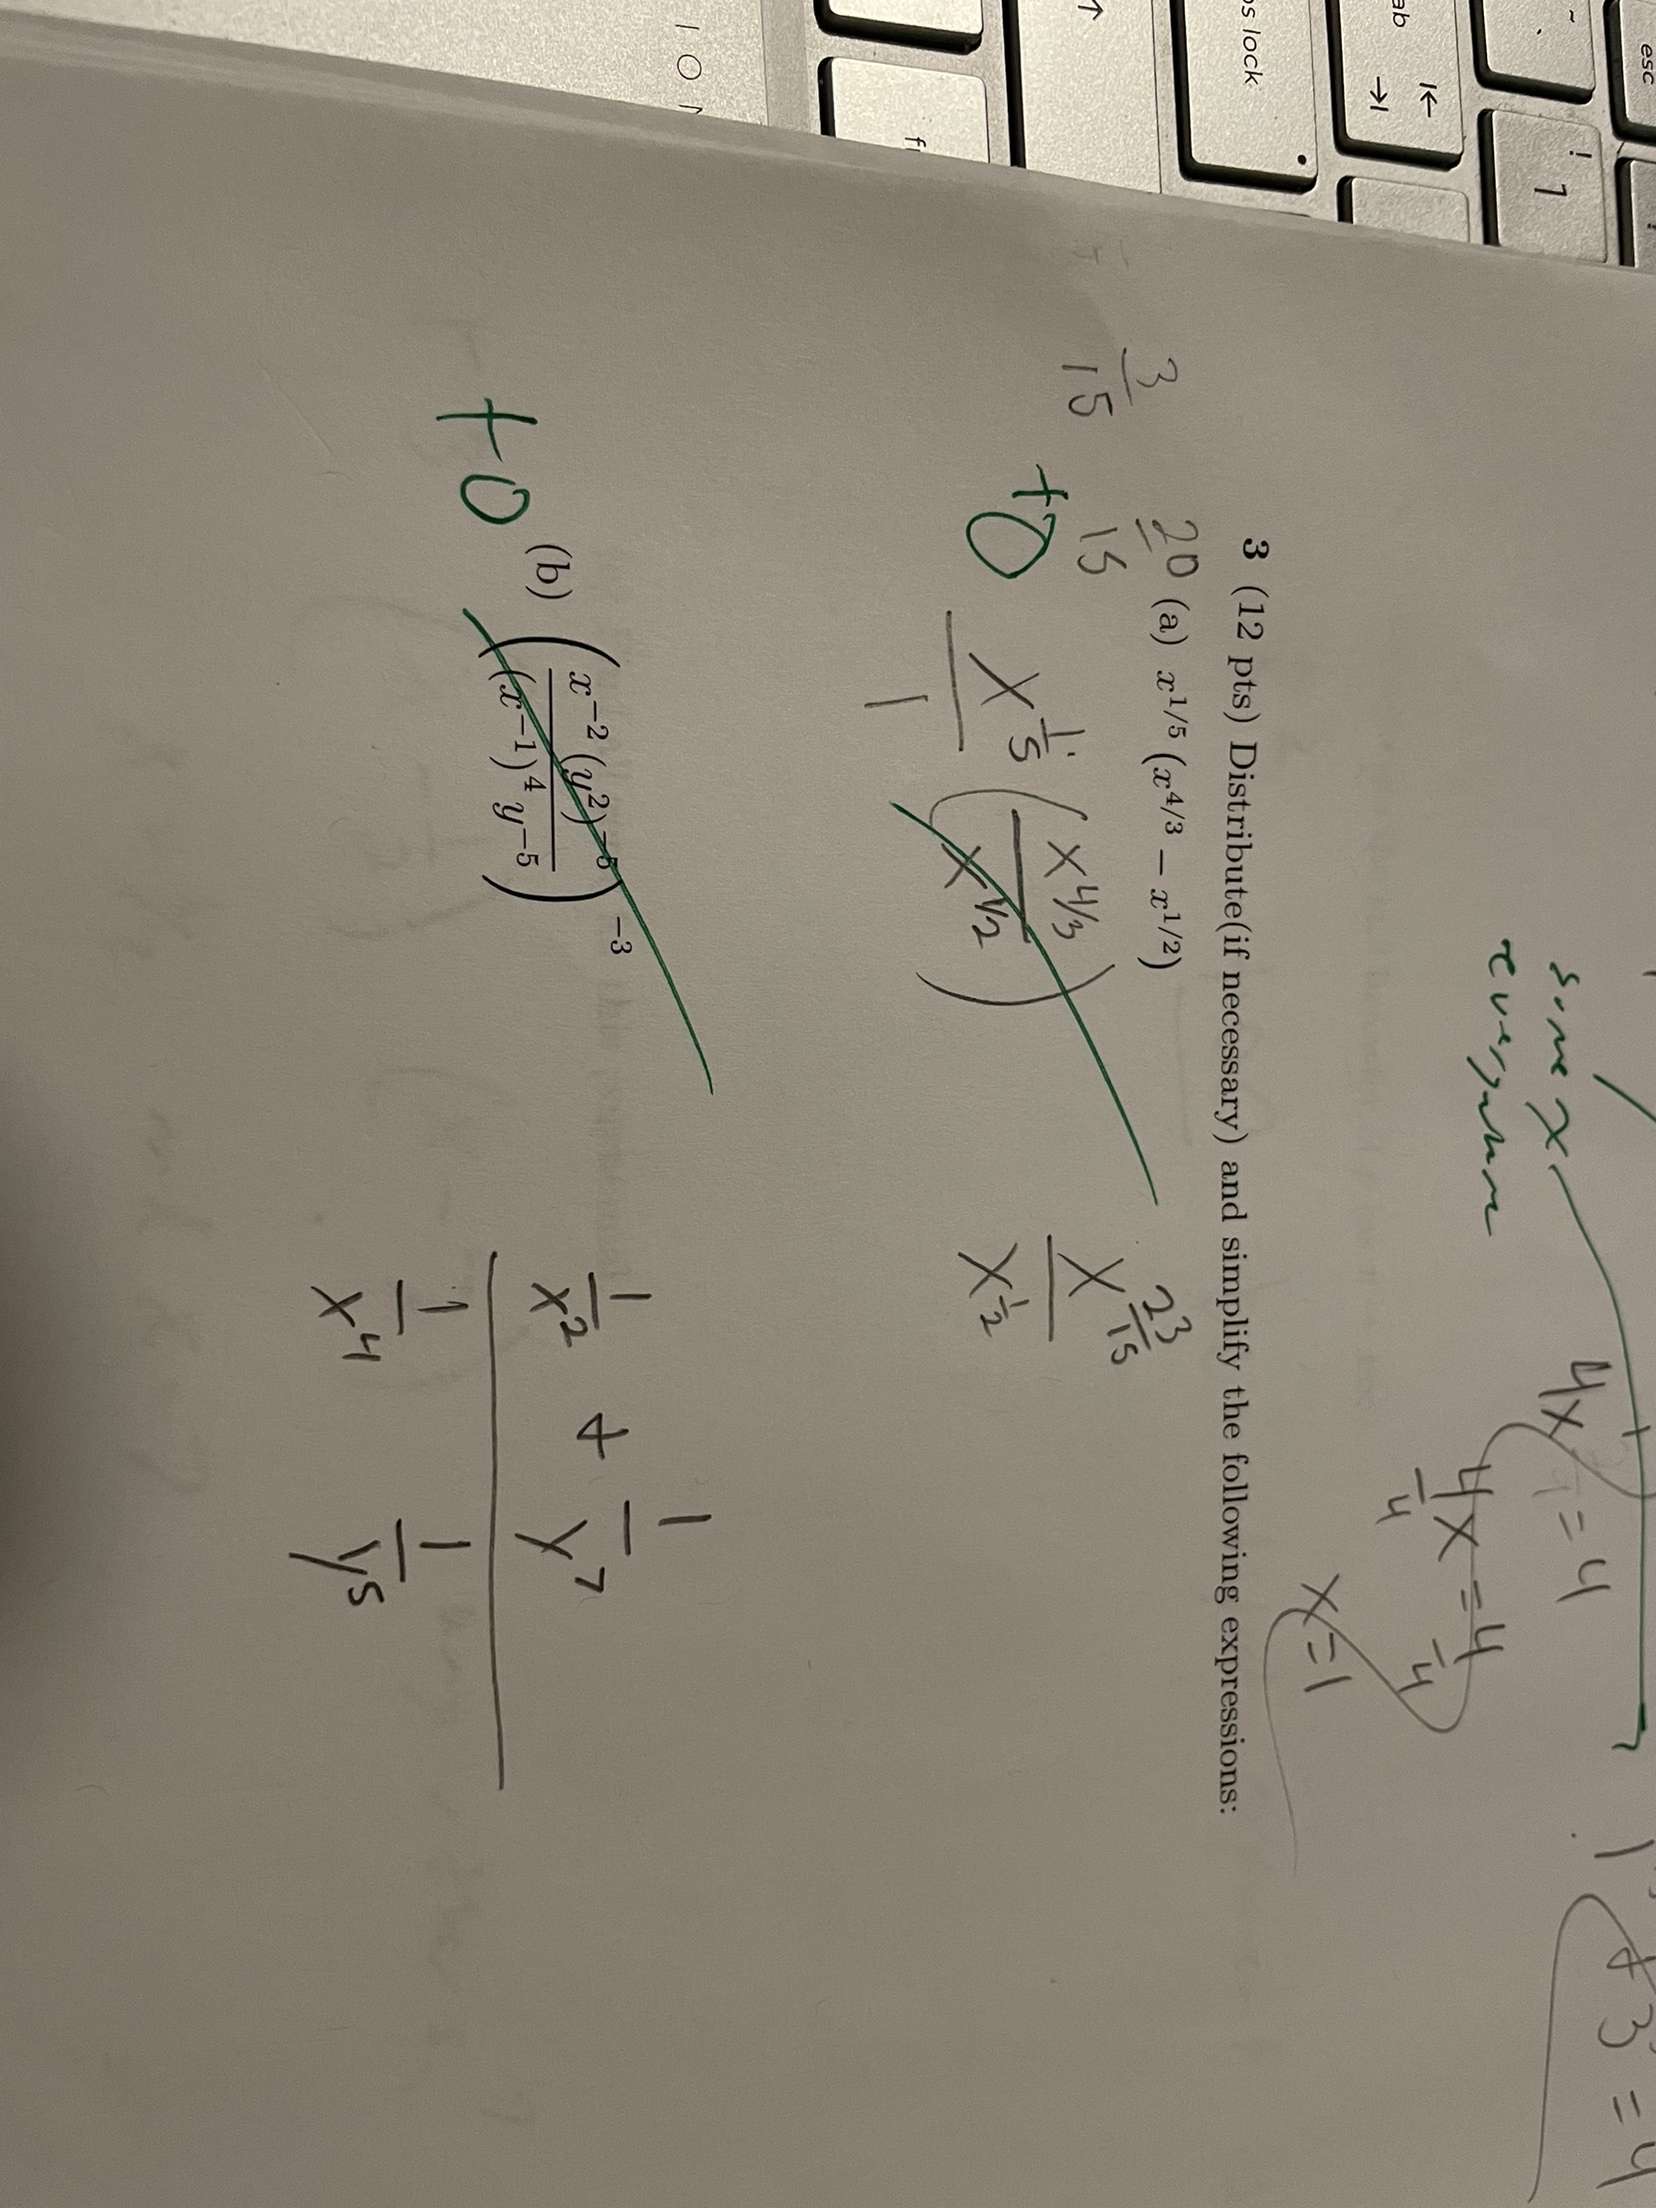 esc
~
`
!
1
ab
os lock
some x
everywhere
4x = 4
4x = 4
4 4
x=1
+3 = 4
3 (12 pts) Distribute(if necessary) and simplify the following expressions:
3/15
20/15
(a) x^{1/5}(x^{4/3} − x^{1/2})
+0
x^{1/5}/1 (x^{4/3}/x^{1/2})
x^{23/15}/x^{1/2}
+0
(b) (x^{−2}(y^{2})^{−5}/(x^{−1})^{4}y^{−5})^{−3}
1/x^{2} + 1/y^{7}
1/x^{4} 1/y^{5}